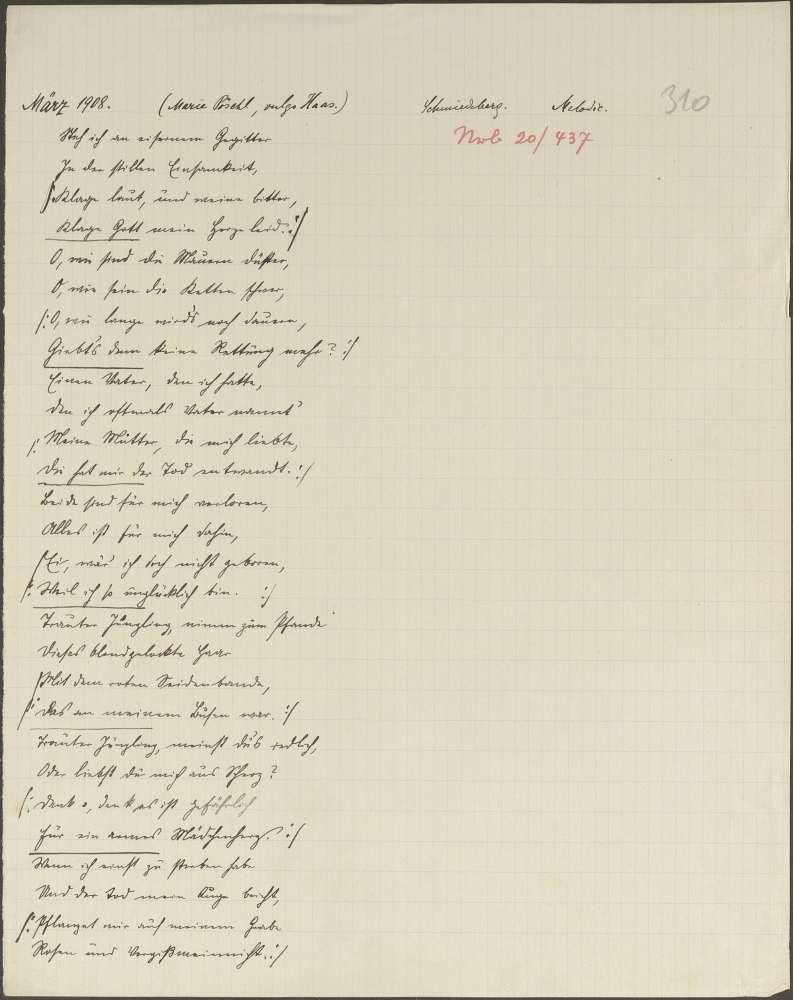 März 1908. (Marie Pöschl, vulgo Haas.) Schmiedeberg. Melodie. 310
Nrb 20/437
Steh ich an eisernem Gegitter
In der stillen Einsamkeit,
/: Klage laut, und weine bitter,
Klage Gott mein Herzeleid. :/
O, wie sind die Mauern düster,
O, wie sein die Ketten schwer,
/: O, wie lange wirds noch dauern,
Giebts denn keine Rettung mehr? :/
Einen Vater, den ich hatte,
den ich oftmals Vater nannt'
/: Meine Mutter, die mich liebte,
Die hat mir der Tod entwandt. :/
Beide sind für mich verloren,
Alles ist für mich dahin,
Ei, wär ich doch nicht geboren,
/: Weil ich so unglücklich bin. :/
Trauter Jüngling, nimm zum Pfande
Dieses blondgelockte Haar
Mit dem roten Seidenbande,
/: Das an meinem Busen war. :/
Trauter Jüngling, meinst dus redlich,
Oder liebst du mich aus Scherz?
/: Denk o, denk es ist gefährlich
Für ein armes Mädchenherz. :/
Wenn ich einst zu sterben habe
Und der Tod mein Auge bricht,
/: Pflanzet mir auf meinem Grabe
Rosen und Vergißmeinnicht. :/